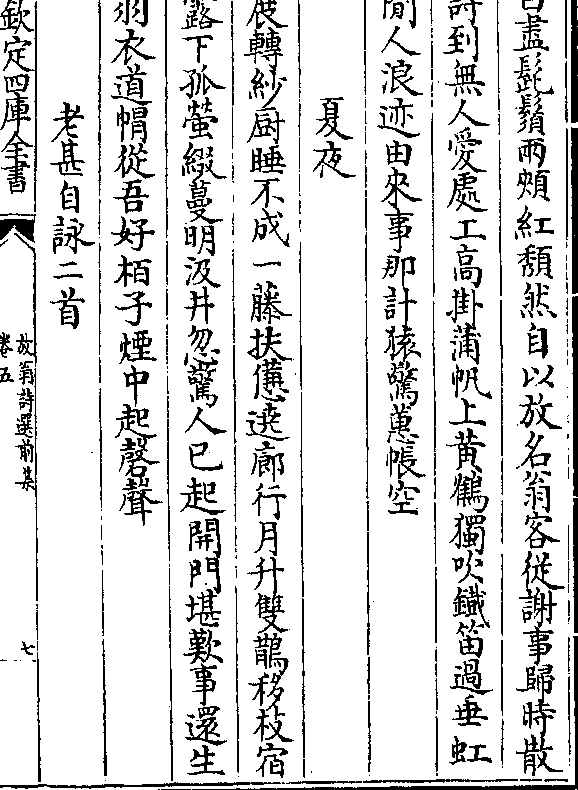 盡髭鬚兩頰紅頽然自以放名翁客從謝事歸時散
詩到無人愛處工高掛蒲帆上黄鶴獨吹鐵笛過垂虹
閒人浪迹由來事那計猿驚蕙帳空
夏夜
展轉紗厨睡不成一藤扶憊遶廊行月升雙鵲移枝宿
露下孤螢綴蔓明汲井忽驚人已起開門堪歎事還生
羽衣道帽從吾好栢子煙中起磬聲
老甚自詠二首
欽定四庫全書
放翁詩選前集
卷五
七